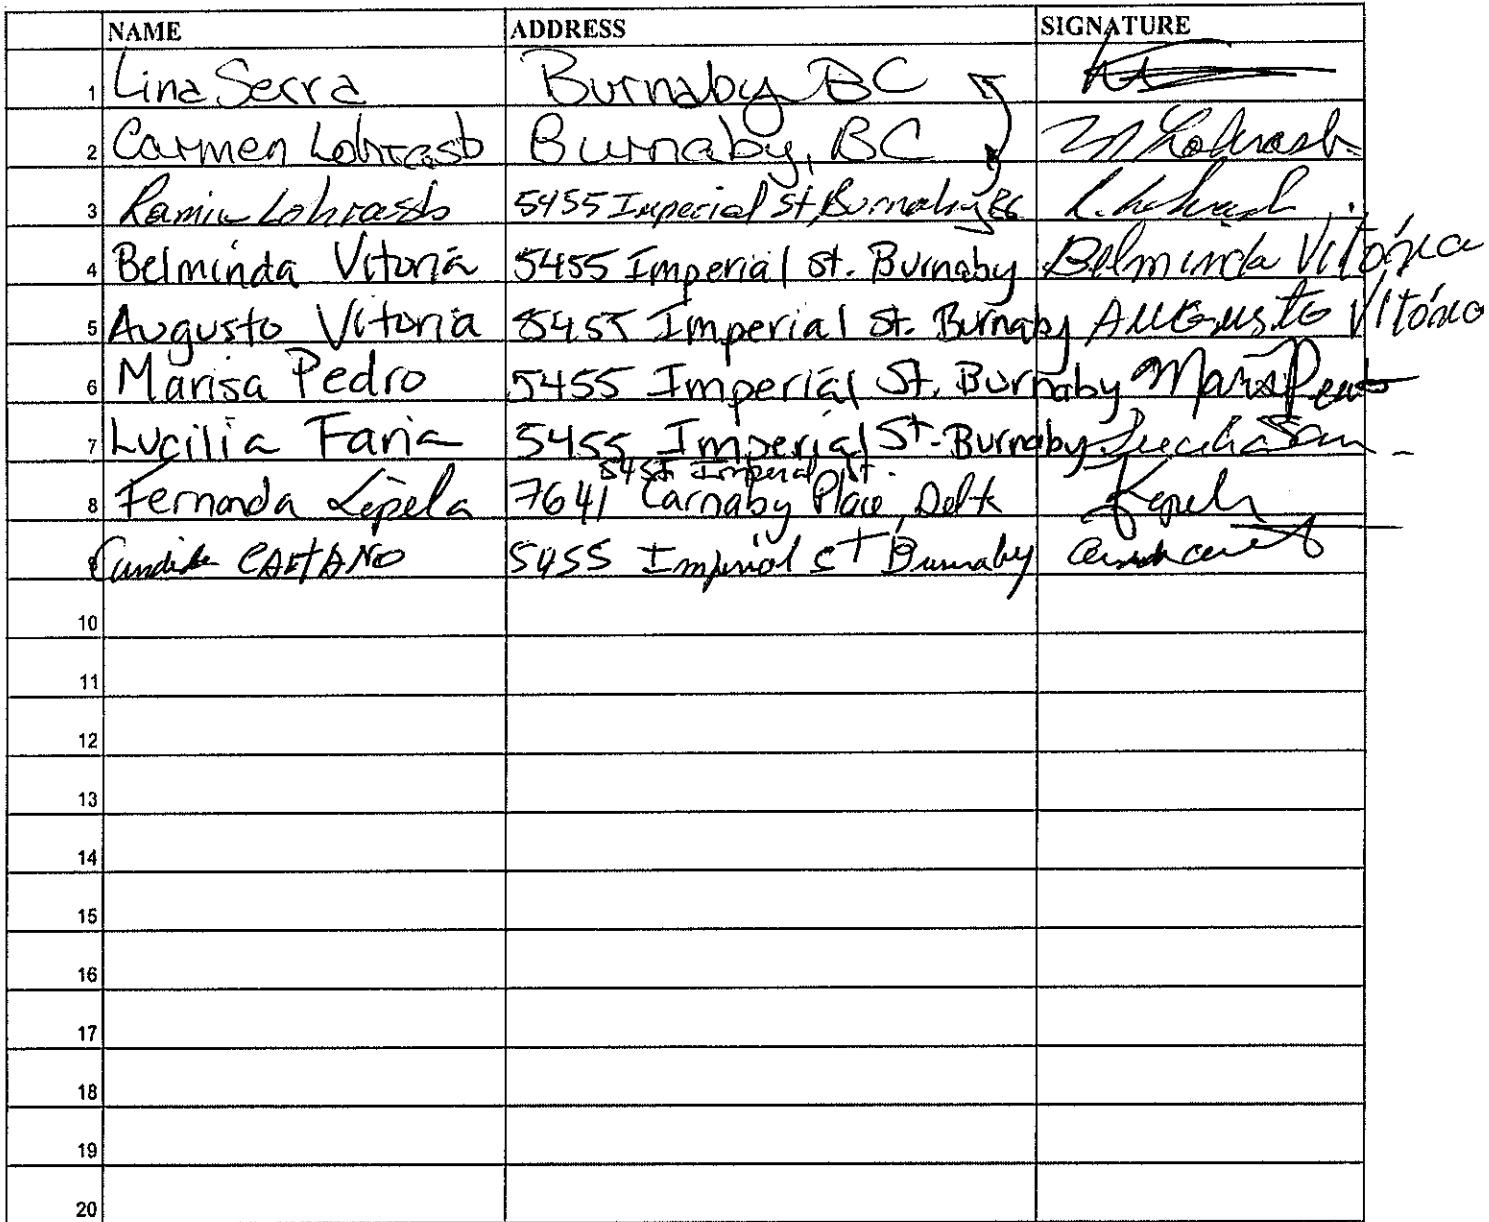 NAME ADDRESS SIGNATURE
1 Lina Serra Burnaby BC
2 Carmen Lohrasb Burnaby, BC M Lohrasb
3 Ramin Lohrasb 5455 Imperial St, Burnaby BC R. Lohrasb
4 Belminda Vitoria 5455 Imperial St. Burnaby Belminda Vitória
5 Augusto Vitoria 5455 Imperial St. Burnaby AUGusto Vitória
6 Marisa Pedro 5455 Imperial St. Burnaby Marisa Pedro
7 Lucilia Faria 5455 Imperial St. Burnaby Lucilia Faria
5455 Imperial St.
8 Fernanda Lepela 7641 Carnaby Place, Delta
CAETANO 5455 Imperial ST Burnaby
10
11
12
13
14
15
16
17
18
19
20